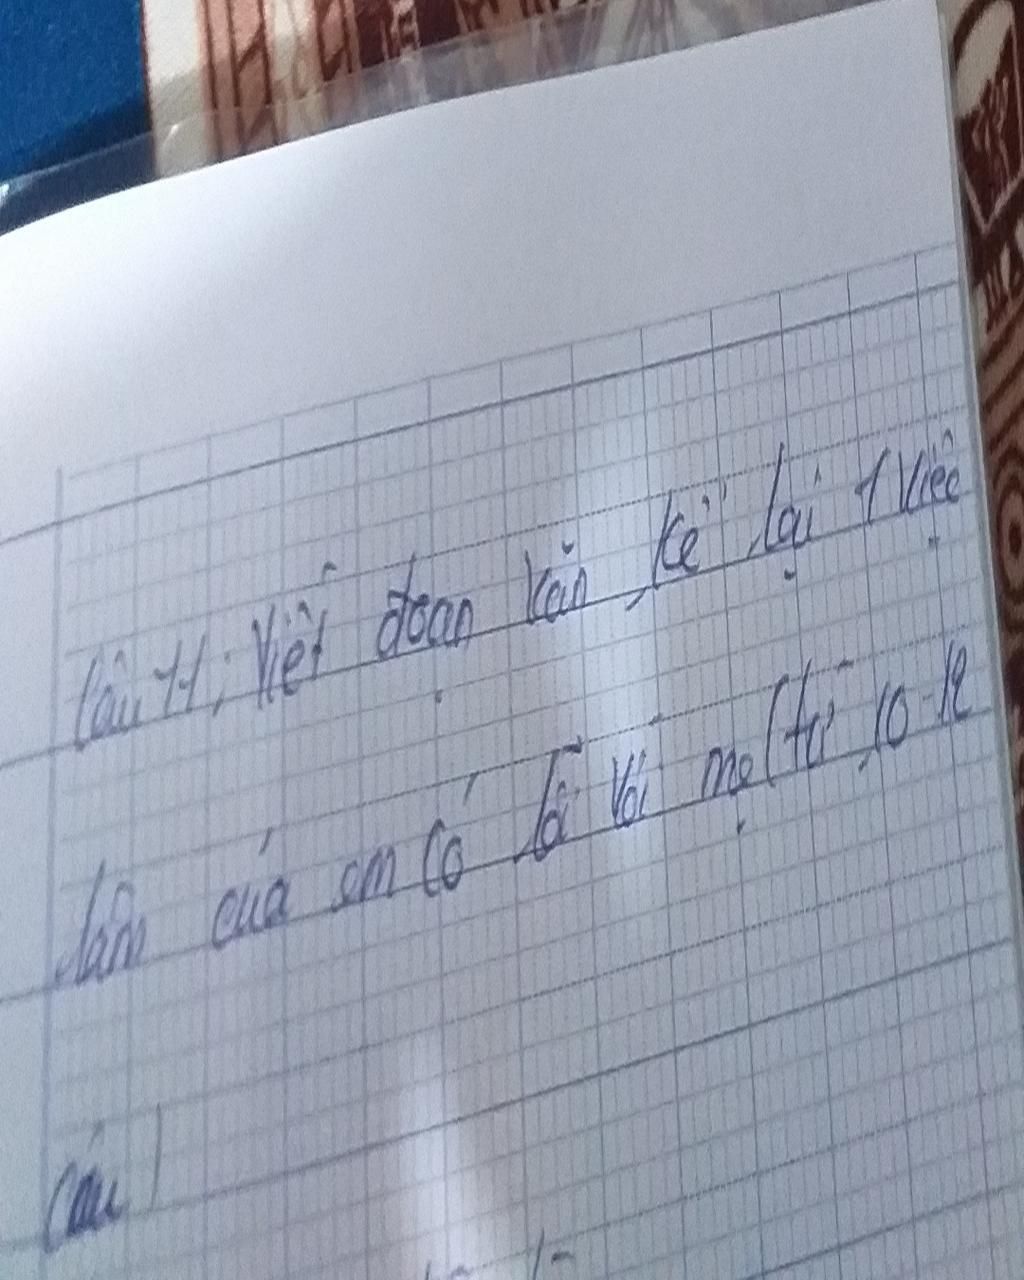 Câu 11: Viết đoạn văn kể lại 1 việc
làm của em có lỗi với mẹ (từ 10-12
câu)